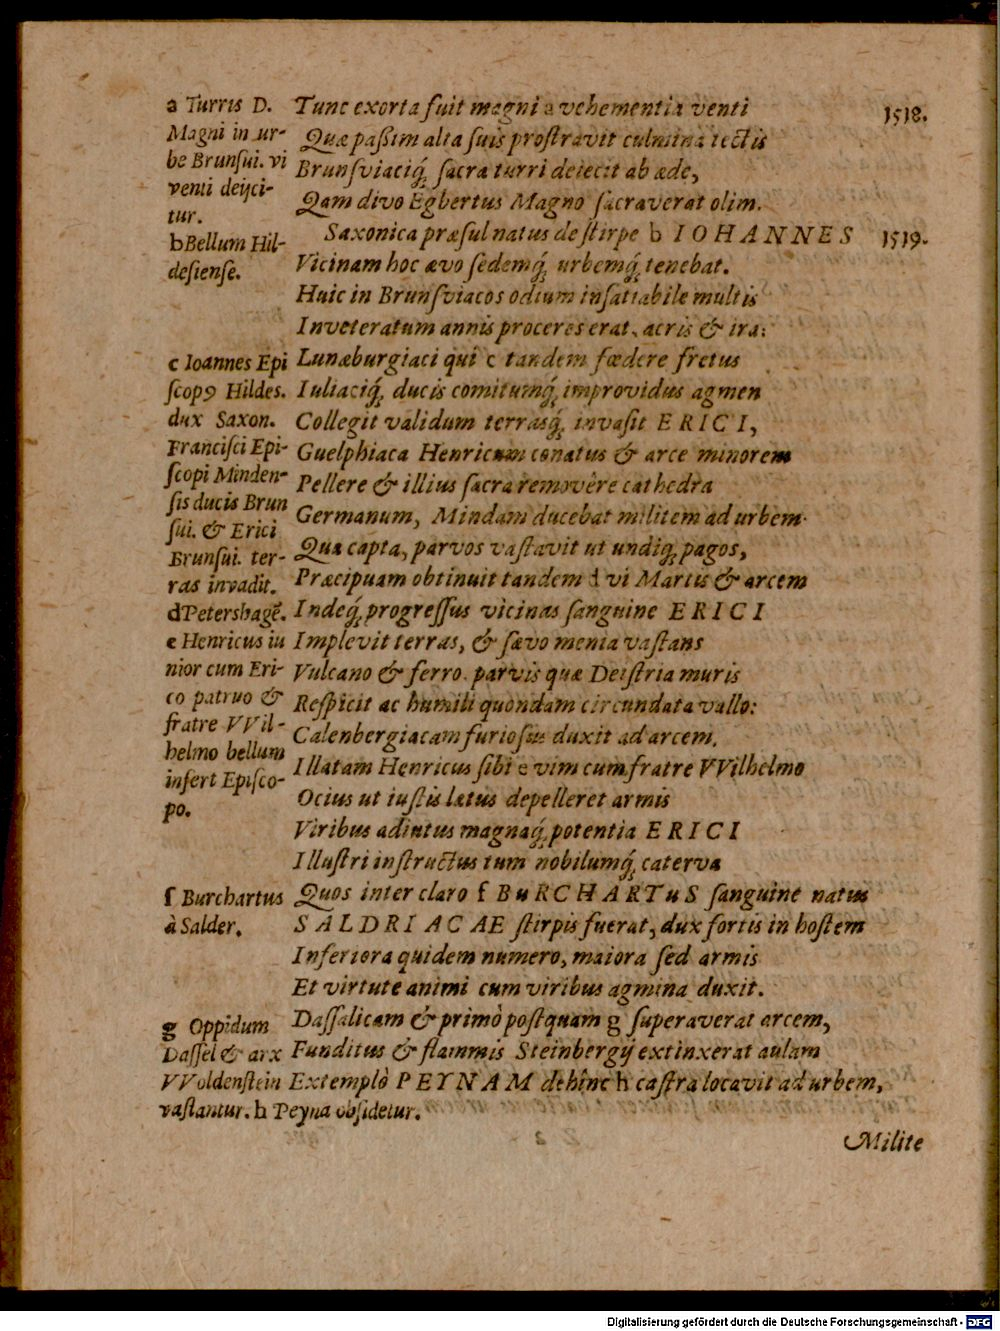 a Turris D.
Magni in ur-
be Brunſui. vi
venti deijci-
tur.
b Bellum Hil-
deſienſe.
c Ioannes Epi
ſcopꝰ Hildes.
dux Saxon.
Franciſci Epi-
ſcopi Minden-
ſis ducis Brun
ſui. & Erici
Brunſui. ter-
ras invadit.
d Petershagẽ.
e Henricus iu
nior cum Eri-
co patruo &
fratre VVil-
helmo bellum
infert Epiſco-
po.
f Burchartus
à Salder.
g Oppidum
Daſſel & arx
VVoldenſtein
vaſtantur. h Peyna obſidetur.
Tunc exorta fuit magni a vehementia venti
1518.
Quæ paßim alta ſuis proſtravit culmina tectis
Brunſviaciq́ꝫ ſacra turri deiecit ab æde,
Qam divo Egbertus Magno ſacraverat olim.
Saxonica præſul natus de ſtirpe b IOHANNES
1519.
Vicinam hoc ævo ſedemq́ꝫ urbemq́ꝫ tenebat.
Huic in Brunſviacos odium inſatiabile multis
Inveteratum annis proceres erat, acris & ira:
Lunæburgiaci qui c tandem fœdere fretus
Iuliaciq́ꝫ ducis comitumq́ꝫ improvidus agmen
Collegit validum terrasq́ꝫ invaſit ERICI,
Guelphiaca Henricum conatus & arce minorem
Pellere & illius ſacra removêre cathedra
Germanum, Mindam ducebat militem ad urbem.
Qua capta, parvos vaſtavit ut undiq́ꝫ pagos,
Præcipuam obtinuit tandem d vi Martis & arcem
Indeq́ꝫ progreſſus vicinas ſanguine ERICI
Implevit terras, & ſævo menia vaſtans
Vulcano & ferro, parvis quæ Deiſtria muris
Reſpicit ac humili quondam circundata vallo:
Calenbergiacam furioſus duxit ad arcem.
Illatam Henricus ſibi e vim cum fratre VVilhelmo
Ocius ut iuſtis lætus depelleret armis
Viribus adiutus magnaq́ꝫ potentia ERICI
Illuſtri inſtructus tum nobilumq́ꝫ caterva
Quos inter claro f BuRCHARTuS ſanguine natus
SALDRIACAE ſtirpis fuerat, dux fortis in hoſtem
Inferiora quidem numero, maiora ſed armis
Et virtute animi cum viribus agmina duxit.
Daſſalicam & primò poſtquam g ſuperaverat arcem,
Funditus & flammis Steinbergij extinxerat aulam
Extemplò PEYNAM dehinc h caſtra locavit ad urbem,
Milite
Digitalisierung gefördert durch die Deutsche Forschungsgemeinschaft - DFG